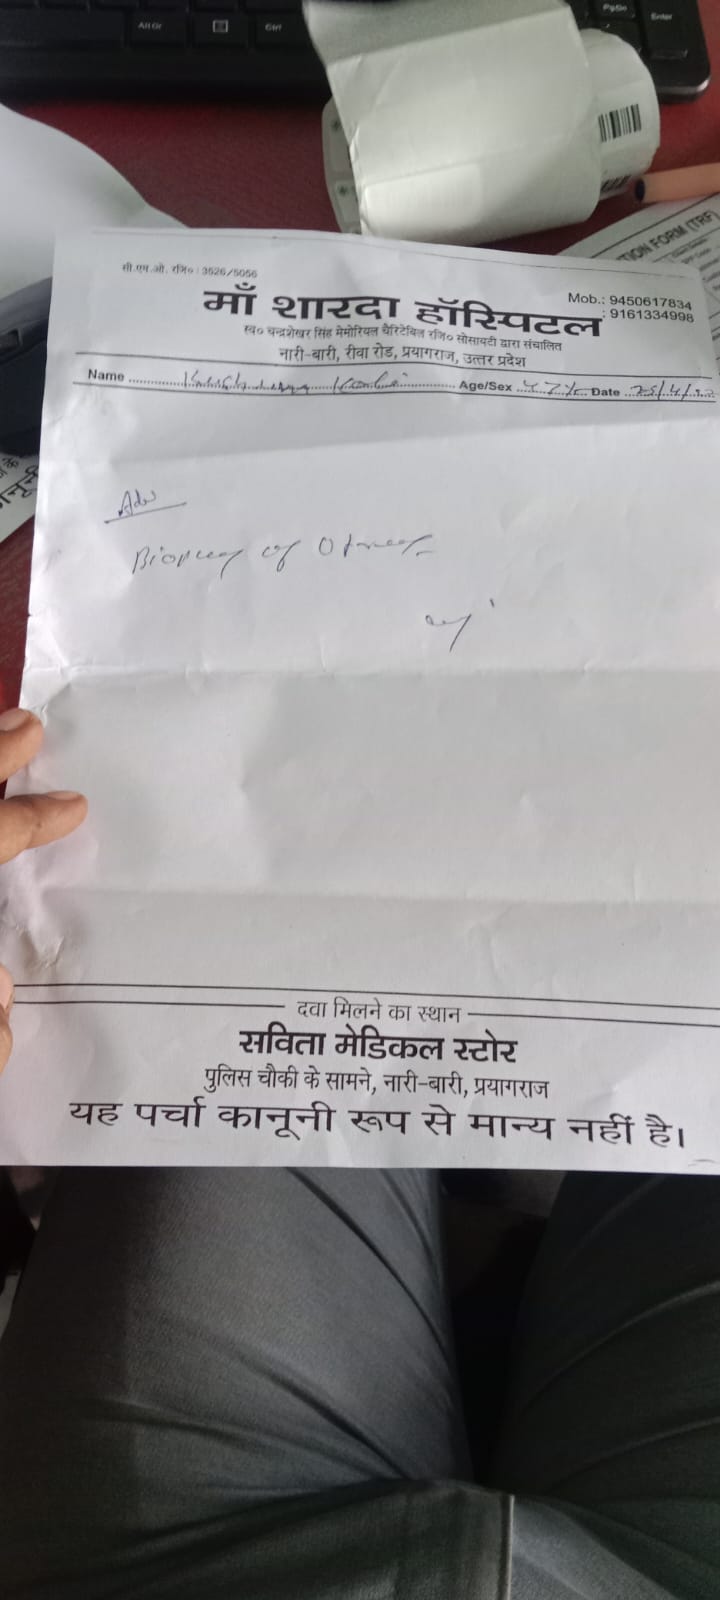 Alt Gr
Ctrl
PgDn
Enter
TION FORM (TRF)
सी.एम.ओ. रजि० : 3526/5056
Mob.: 9450617834
: 9161334998
माँ शारदा हॉस्पिटल
स्व० चन्द्रशेखर सिंह मेमोरियल चैरिटेबिल रजि० सोसायटी द्वारा संचालित
नारी-बारी, रीवा रोड, प्रयागराज, उत्तर प्रदेश
Name Age/Sex Date 25/4/
Adv
Biopsy of
दवा मिलने का स्थान
सविता मेडिकल स्टोर
पुलिस चौकी के सामने, नारी-बारी, प्रयागराज
यह पर्चा कानूनी रूप से मान्य नहीं है।